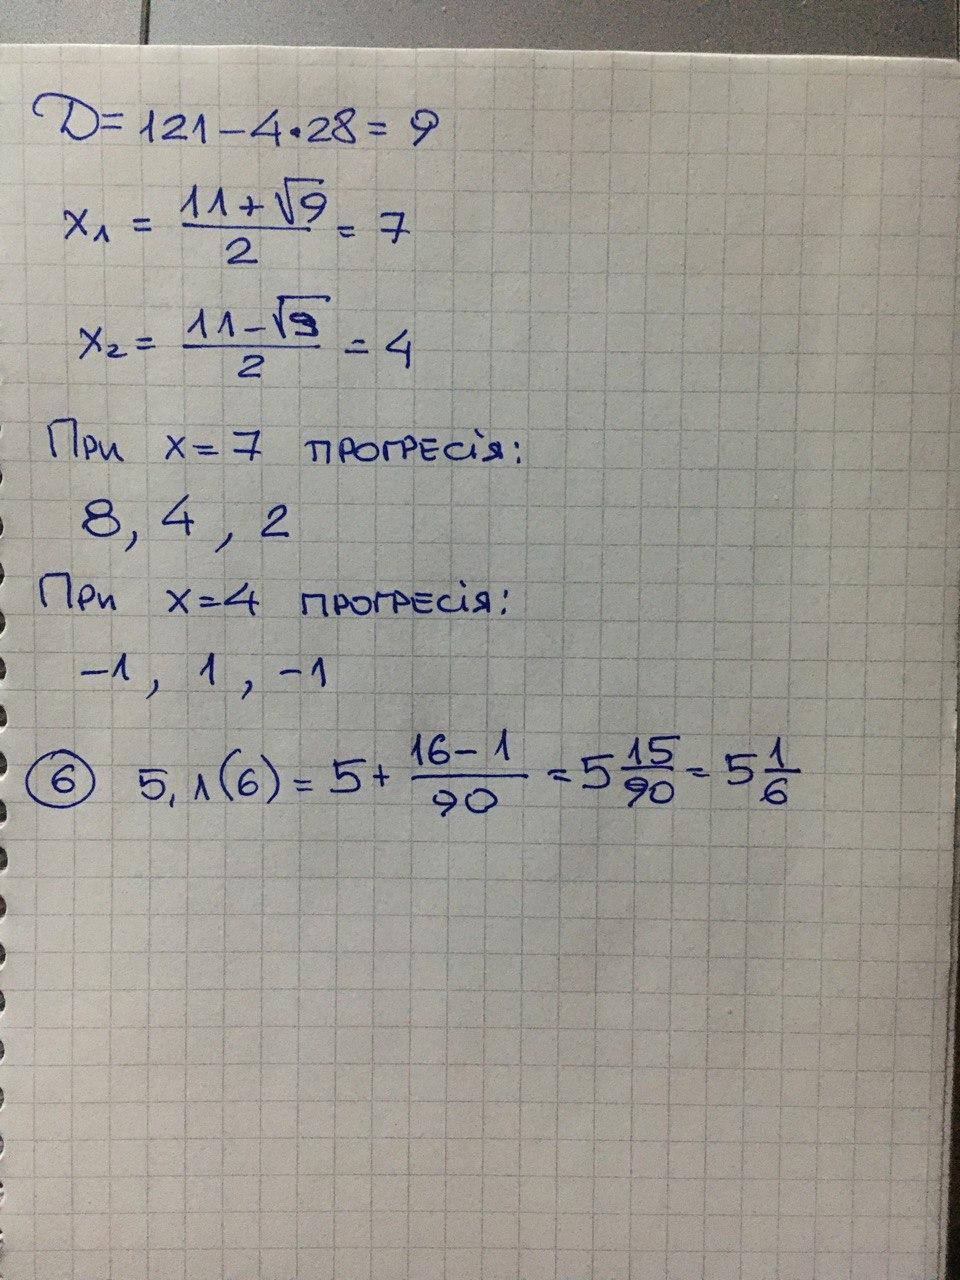 D = 121 - 4 • 28 = 9
x₁ = (11 + √9)/2 = 7
x₂ = (11 - √9)/2 = 4
При x = 7 прогресія:
8, 4, 2
При x = 4 прогресія:
-1, 1, -1
⑥ 5,1(6) = 5 + (16 - 1)/90 = 5 15/90 = 5 1/6